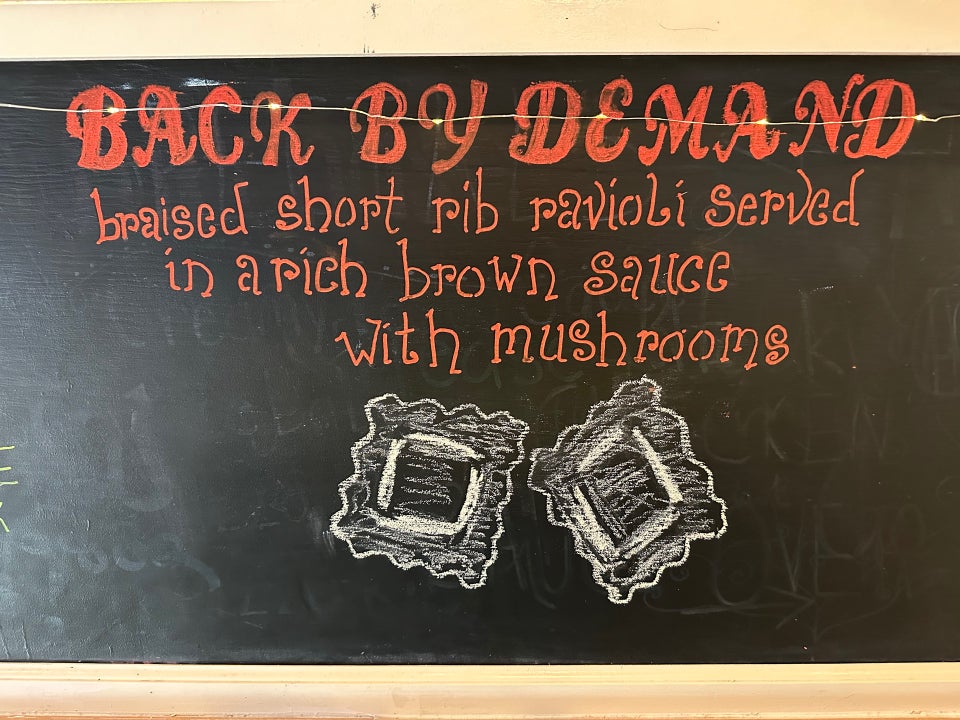 BACK BY DEMAND
braised short rib ravioli served
in a rich brown sauce
with mushrooms